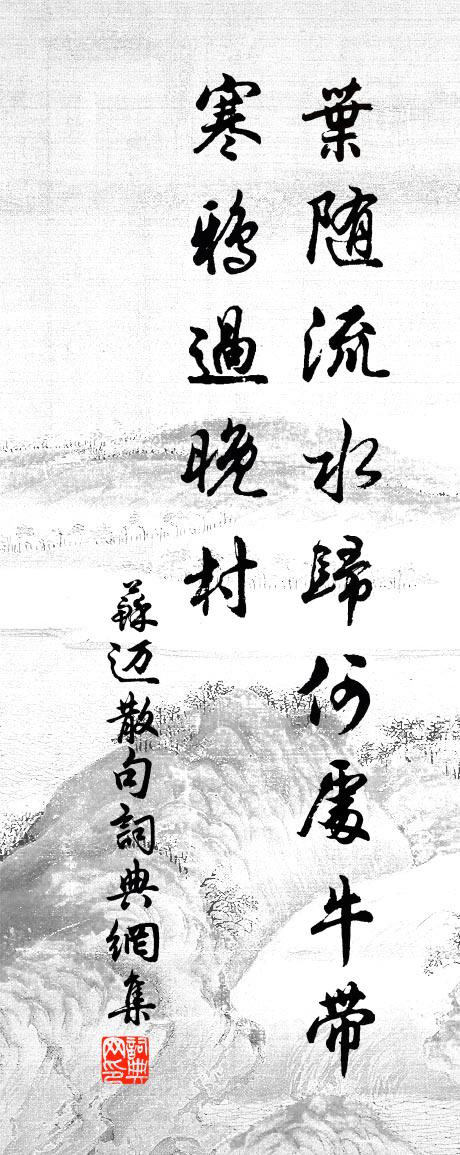 葉随流水歸何處牛帶
寒鴉過晚村
蘇迈散句詞典網集
詞典网印